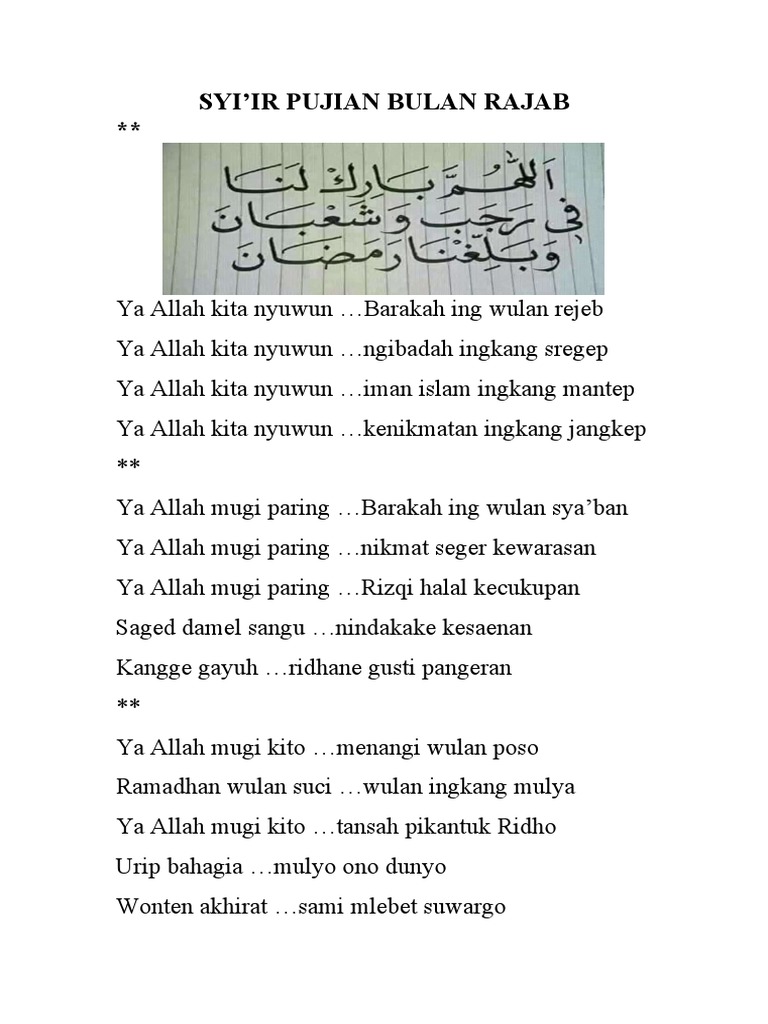 SYI’IR PUJIAN BULAN RAJAB
**
اَللّٰهُمَّ بَارِكْ لَنَا
فِى رَجَبَ وَشَعْبَانَ
وَبَلِّغْنَا رَمَضَانَ
Ya Allah kita nyuwun …Barakah ing wulan rejeb
Ya Allah kita nyuwun …ngibadah ingkang sregep
Ya Allah kita nyuwun …iman islam ingkang mantep
Ya Allah kita nyuwun …kenikmatan ingkang jangkep
**
Ya Allah mugi paring …Barakah ing wulan sya’ban
Ya Allah mugi paring …nikmat seger kewarasan
Ya Allah mugi paring …Rizqi halal kecukupan
Saged damel sangu …nindakake kesaenan
Kangge gayuh …ridhane gusti pangeran
**
Ya Allah mugi kito …menangi wulan poso
Ramadhan wulan suci …wulan ingkang mulya
Ya Allah mugi kito …tansah pikantuk Ridho
Urip bahagia …mulyo ono dunyo
Wonten akhirat …sami mlebet suwargo